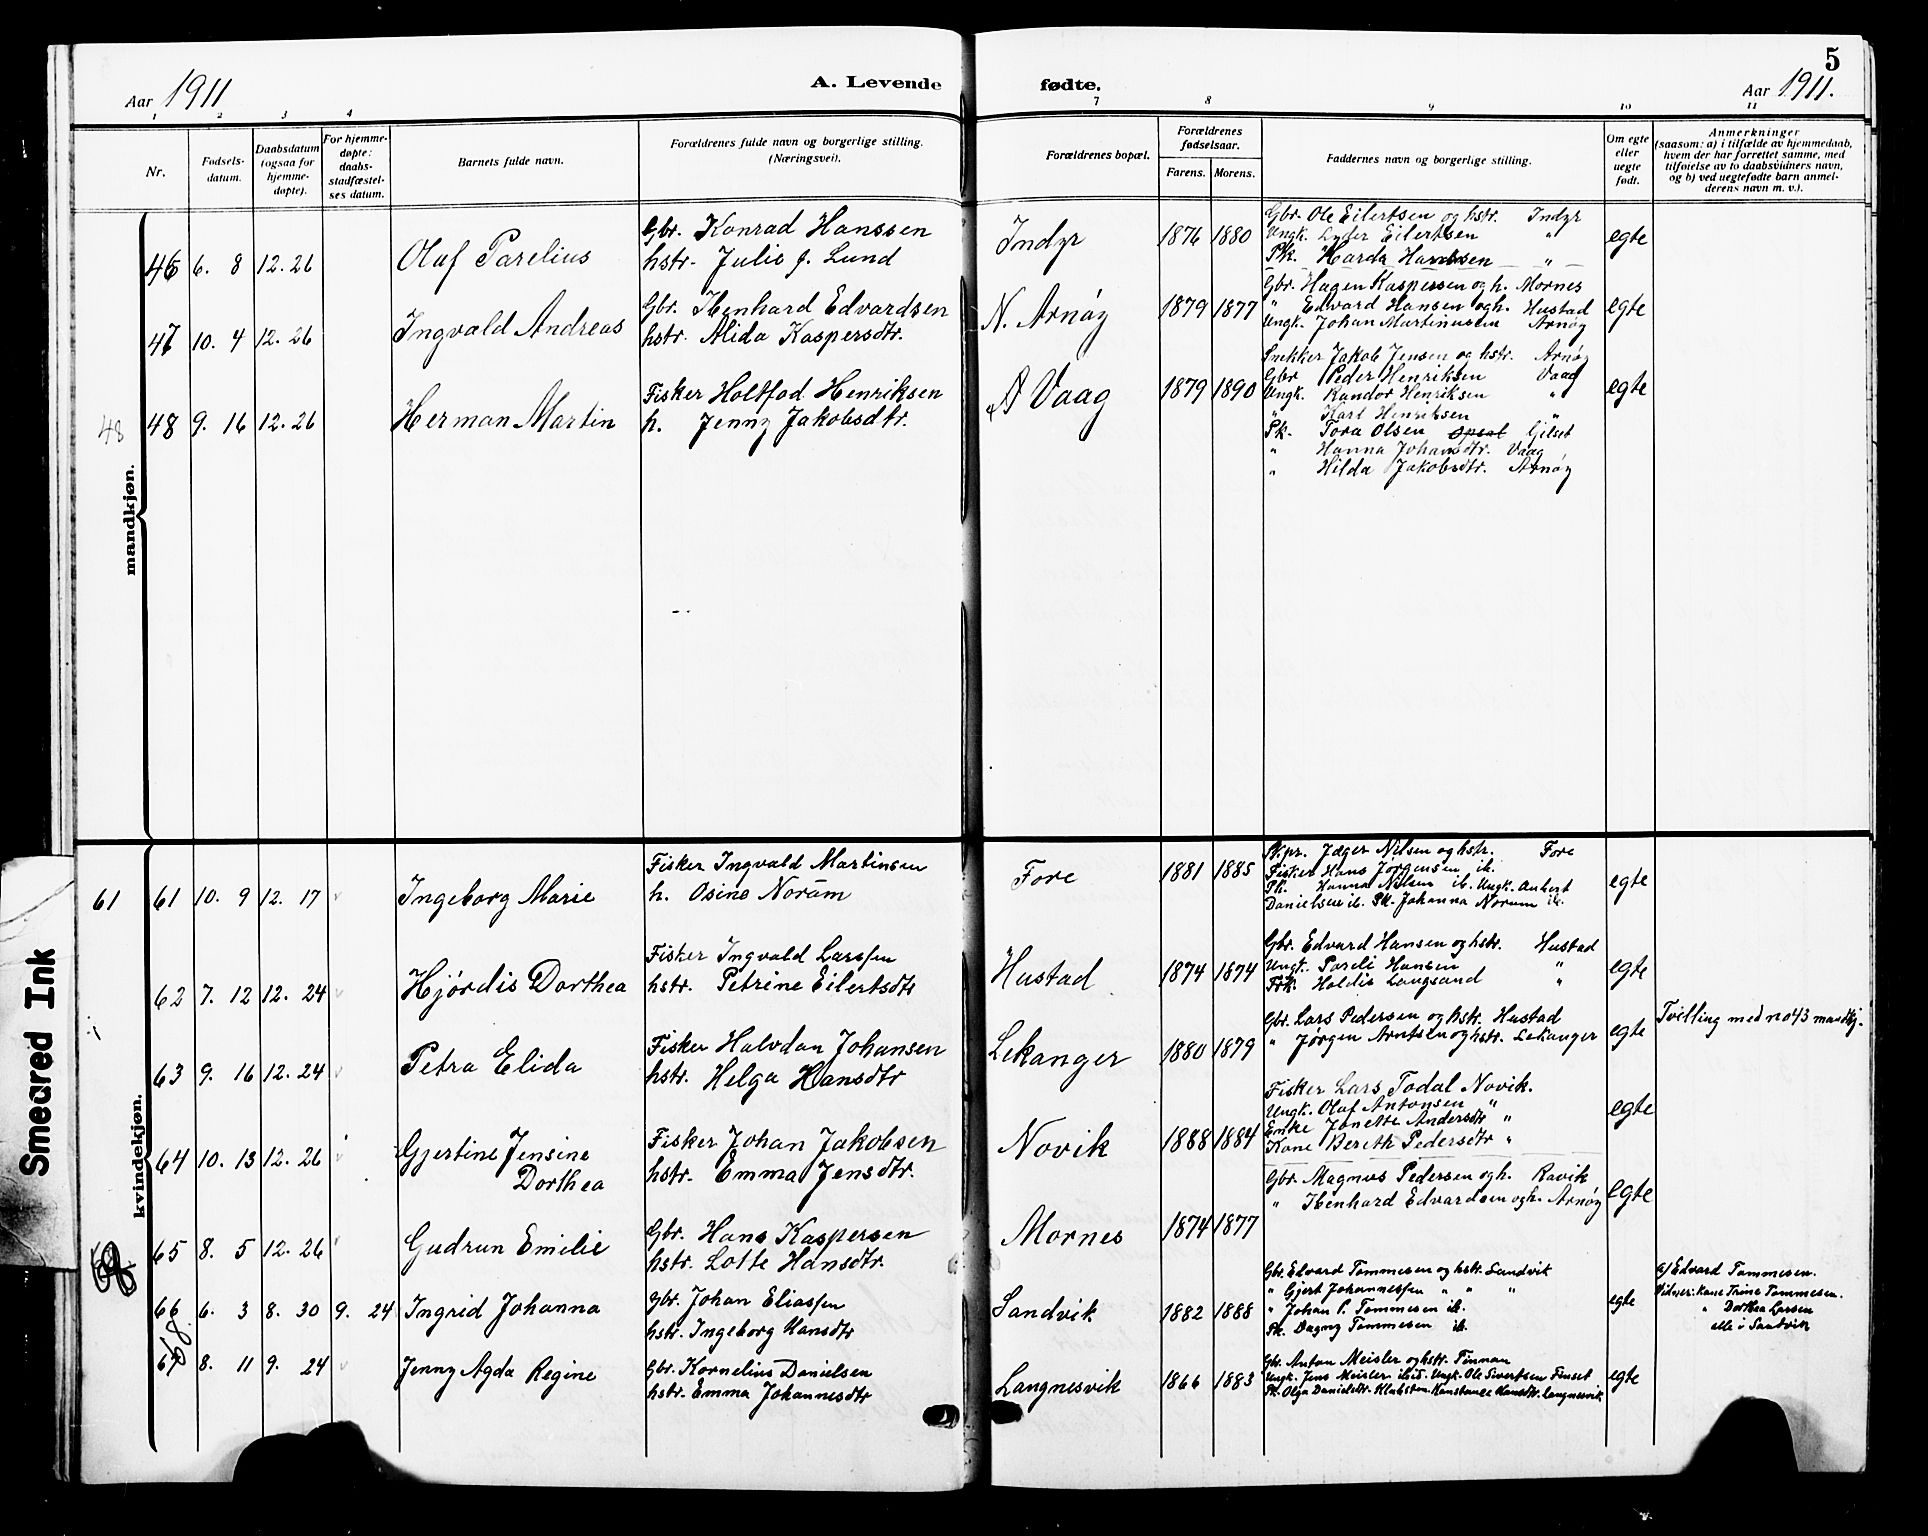 5
Aar 1911
A. Levende fødte.
Aar 1911.
1 2 3 4 7 8 9 10 11
Nr.
Fødsels-
datum.
Daabsdatum
(ogsaa for
hjemme-
døpte).
For hjemme-
døpte:
daabs-
stadfæstel-
ses datum.
Barnets fulde navn.
Forældrenes fulde navn og borgerlige stilling.
(Næringsvei).
Forældrenes bopæl.
Forældrenes
fødselsaar.
Farens. Morens.
Faddernes navn og borgerlige stilling.
Om egte
eller
uegte
født.
Anmerkninger
(saasom: a) i tilfælde av hjemmedaab,
hvem der har forrettet samme, med
tilføielse av to daabsvidners navn,
og b) ved uegtefødte barn anmel-
derens navn m. v.).
mandkjøn.
46 6. 8 12. 26 Olaf Parelius
Gbr. Konrad Hanssen
hstr. Julie J. Lund
Indyr 1876 1880
Gbr. Ole Eilertsen og hstr. Indyr
Ungk. Lyder Eilertsen "
Pk. Harda Hansen "
egte
47 10. 4 12. 26 Ingvald Andreas
Gbr. Ibenhard Edvardsen
hstr. Alida Kaspersdtr.
N. Arnøy 1879 1877
Gbr. Hagen Kaspersen og h. Mornes
" Edvard Hansen og h. Hustad
Ungk. Johan Martinusen Arnøy
egte
48 48 9. 16 12. 26 Herman Martin
Fisker Holtfod Henriksen
h. Jenny Jakobsdtr.
Vaag 1879 1890
Snekker Jakob Jensen og hstr. Arnøy
Gbr Peder Henriksen Vaag
Ungk. Randor Henriksen "
" Karl Henriksen "
Pk. Tora Olsen Opsal Gilset
" Hanna Johansdtr. Vaag
" Hilda Jakobsdtr. Arnøy
egte
kvindekjøn.
61 61 10. 9 12. 17 Ingeborg Marie
Fisker Ingvald Martinsen
h. Osine Norum
Fore 1881 1885
Jæger Nilsen og hstr. Fore
Fisker Hans Jørgensen ib.
Pk. Hanna Nilsen ib. Ungk. Anbert
Danielsen ib. Pk. Johanna Norum ib.
egte
62 7. 12 12. 24 Hjørdis Dorthea
Fisker Ingvald Larssen
hstr. Petrine Eilertsdtr
Hustad 1874 1874
Gbr. Edvard Hansen og hstr. Hustad
Ungk. Pareli Hansen "
Frk. Haldis Langsand "
egte
63 9. 16 12. 24 Petra Elida
Fisker Halvdan Johansen
hstr. Helga Hansdtr
Lekanger 1880 1879
Gbr. Lars Pedersen og hstr. Hustad
" Jørgen Arntsen og hstr. Lekanger
egte
Tvilling med no 43 mandkj.
64 10. 13 12. 26 Gjertine Jensine
Dorthea
Fisker Johan Jakobsen
hstr. Emma Jensdtr.
Novik 1888 1884
Fisker Lars Todal Novik.
Ungk. Olaf Antonsen "
Enke Janette Andersdtr "
Kone Bereth Pedersdtr "
egte
65 8. 5 12. 26 Gudrun Emilie
Gbr. Hans Kaspersen
hstr. Lotte Hansdtr.
Mornes 1874 1877
Gbr. Magnus Pedersen og h. Ravik
" Ibenhard Edvardsen og h. Arnøy
egte
66 6. 3 8. 30 9. 24 Ingrid Johanna
Gbr. Johan Eliassen
hstr. Ingeborg Hansdtr
Sandvik 1882 1888
Gbr. Edvard Tommesen og hstr. Sandvik
" Gjert Johannessen " " "
" Johan P. Tommesen ib.
Pk. Dagny Tommesen ib.
egte
a) Edvard Tommesen.
Vidner: Kone Trine Tommesen.
" Dorthea Larsen
alle i Sandvik
68.
67 8. 11 9. 24 Jenny Agda Regine
Gbr. Kornelius Danielsen
hstr. Emma Johannesdtr
Langnesvik 1866 1883
Gbr. Anton Meisler og hstr. Finnan
Ungk. Jens Meisler ibid. Ungk. Ole Sivertsen Finset
Pk. Olga Danielsdtr. Konstance Hansdtr. Langnesvik
egte
Smeared Ink